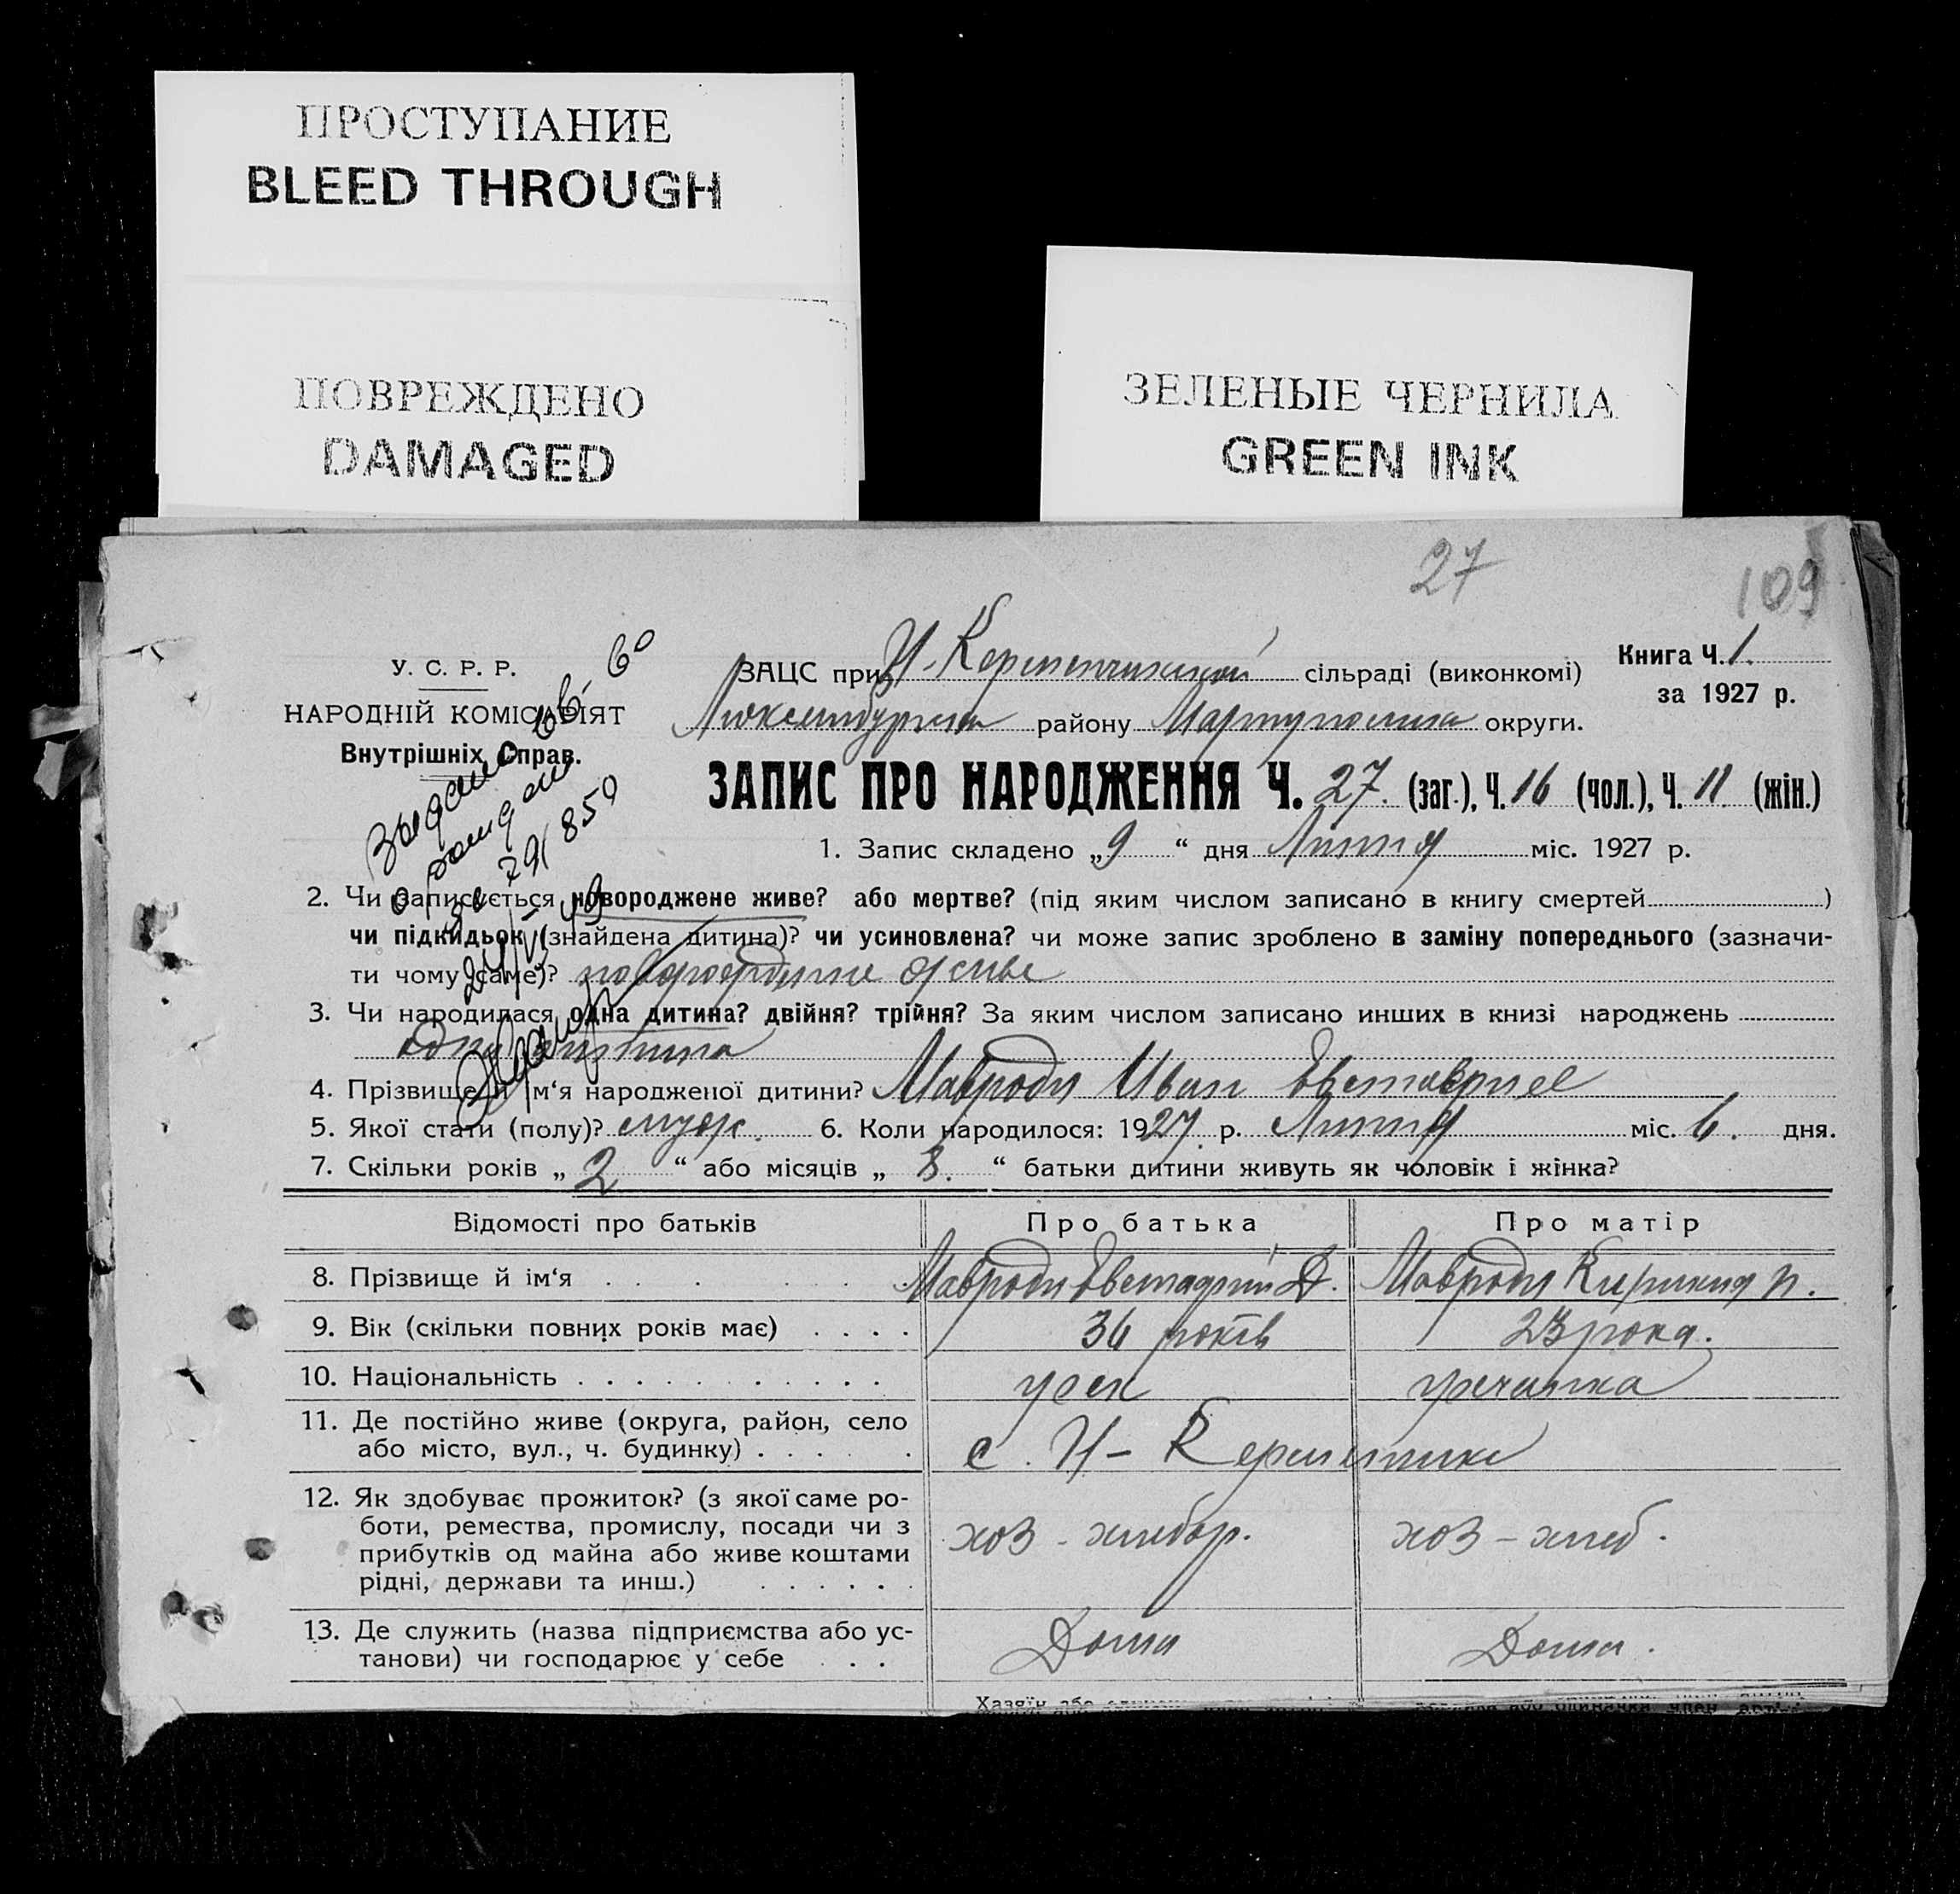 ПРОСТУПАНИЕ
BLEED THROUGH
ПОВРЕЖДЕНО
DAMAGED
ЗЕЛЕНЫЕ ЧЕРНИЛА
GREEN INK
27
109
У. С. Р. Р.
НАРОДНІЙ КОМІСАРІЯТ
Внутрішніх Справ.
ЗАЦС при Н-Керменчикской сільраді (виконкомі)
Книга Ч. 1.
за 1927 р.
району округи.
ЗАПИС ПРО НАРОДЖЕННЯ Ч. 27. (заг.), Ч. 16 (чол.), Ч. 11. (жін.)
1. Запис складено „9“ дня Липня міс. 1927 р.
2. Чи записується новороджене живе? або мертве? (під яким числом записано в книгу смертей )
чи підкидьок (знайдена дитина)? чи усиновлена? чи може запис зроблено в заміну попереднього (зазначи-
ти чому саме)? живе
3. Чи народилася одна дитина? двійня? трійня? За яким числом записано инших в книзі народжень
одна дитина
4. Прізвище й ім‘я народженої дитини? Мавроди Иван
5. Якої стати (полу)? муж. 6. Коли народилося: 1927 р. Липня міс. 6. дня.
7. Скільки років „2“ або місяців „8.“ батьки дитини живуть як чоловік і жінка?
Відомості про батьків
Про батька
Про матір
8. Прізвище й ім‘я . . . . . . Мавроди Евстафий Д. Мавроди
9. Вік (скільки повних років має) . . . . 36 років 23 рока.
10. Національність . . . . . . . . . . . грек гречанка
11. Де постійно живе (округа, район, село
або місто, вул., ч. будинку) . . . . . . с. Н-Керменчик
12. Як здобуває прожиток? (з якої саме ро-
боти, ремества, промислу, посади чи з
прибутків од майна або живе коштами
рідні, держави та инш.) . . . . . .
хоз - хлебор. хоз - хлеб.
13. Де служить (назва підприємства або ус-
танови) чи господарює у себе . . .
Дома Дома.